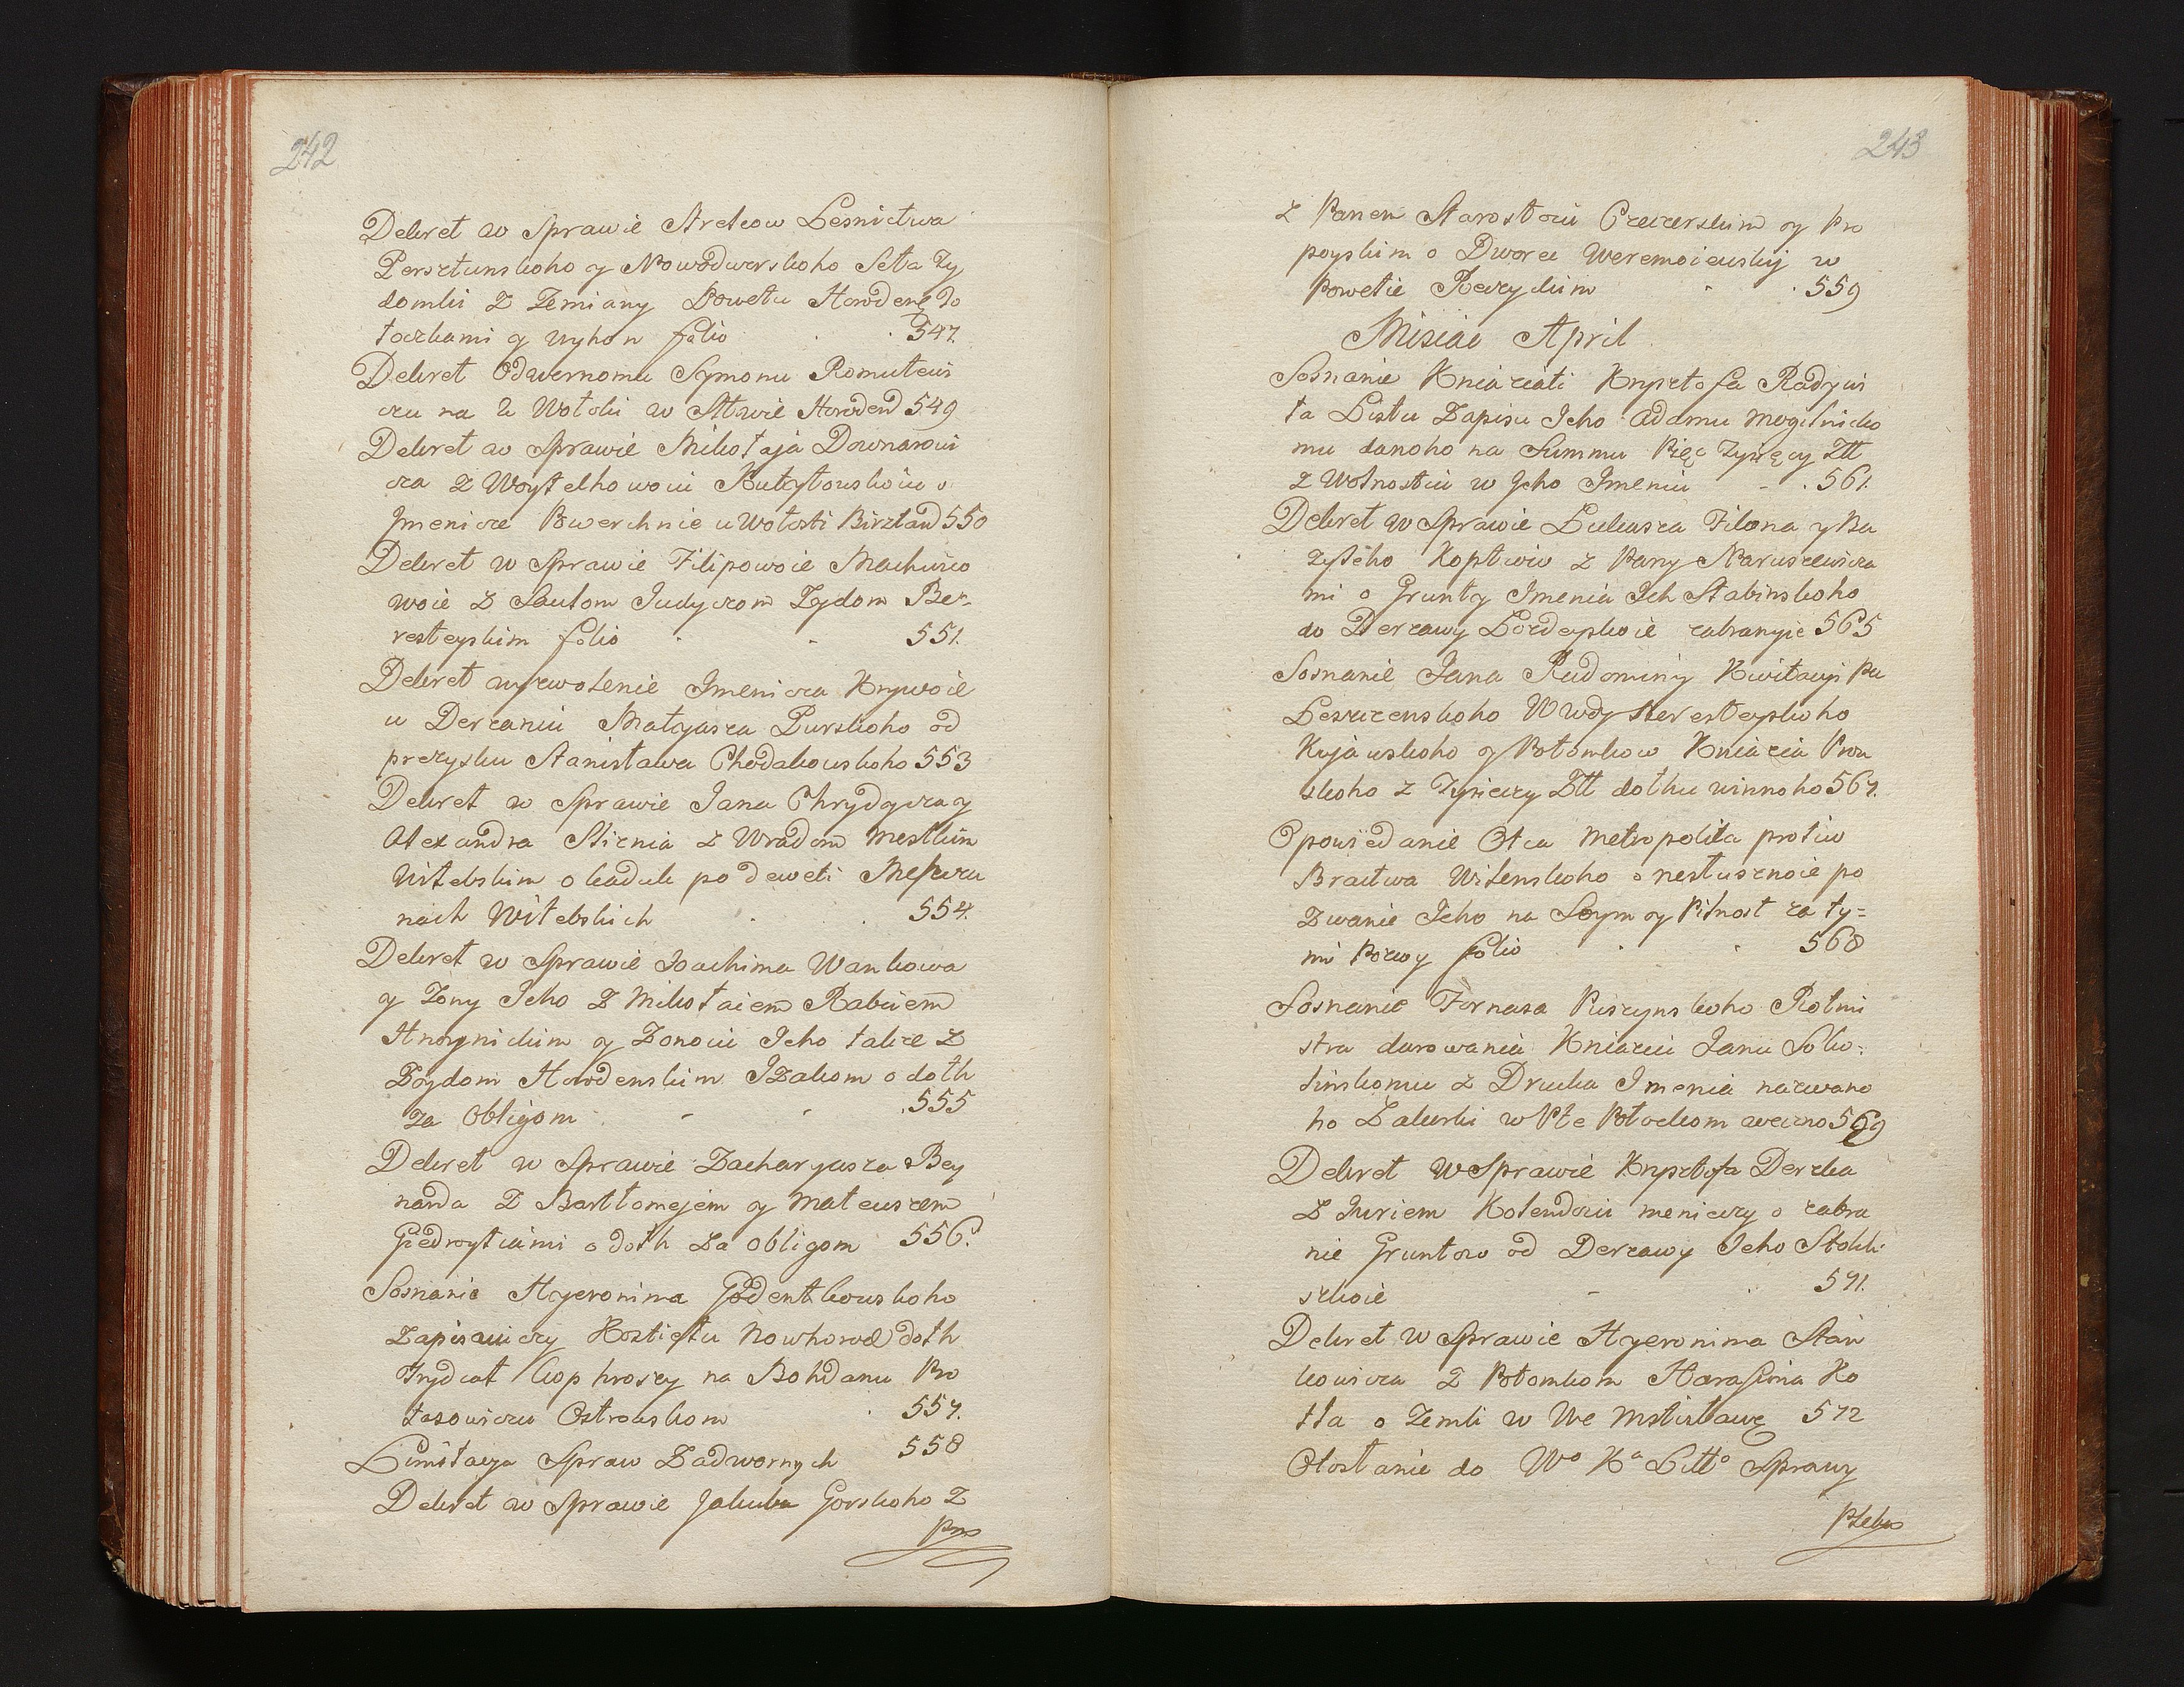 242
Dekret w Sprawie Strelcow Lesnictwa
Persztunskoho y Nowodworskoho Seta Zy
domli z Zemiany Powetu Horoden Do
toczkami y Wyhon folio 547.
Dekret Odwernomu Symonu Romutewi
czu na 2 Wołoki w Sttwie Horoden 549
Dekret w Sprawie Mikołaja Downarowi
cza z Woytelhowoiu o
Imenicze Powerchnie u Wołosti Birztan 550
Dekret w Sprawie Filipowoie Machuico
woie z Saulom Judyczom Zydom Be-
resteyskim folio 551.
Dekret wyzwolenie Imenicza Krywoie
u Derzaniu Matyasza Burskoho od
prezysku Stanisława Chodakowskoho 553
Dekret w Sprawie Jana Chrydycza y
Alexandra Stirnia z Wradom Mestkim
Witebskim o kaduk po deweti
nach Witebskich 554.
Dekret w Sprawie Joachima Wankowa
y Zony Jeho z Mikołaiem Rabiiem
y Zonoiu Jeho takze z
Zoydom Horodenskim Izakom o dołh
za Obligom 555
Dekret w Sprawie Zacharyasza Bey
narda z Bartłomejem y Mateuszem
Giedroytiami o dołh za Obligom 556.
Soznanie Hyeronima
Zapisawiczy Kostiełu Nowhorod dołh
Trydcat kop hroszy na Bohdanu Pro
tasowiczu Ostrowskom 557.
Limitacya Spraw Zadwornych 558
Dekret w Sprawie Jakuba Gorskoho z
Pno
243
z Panem Starostoiu Czeczerskim y Pro
poyskim o Dworec Weremoiewskij w
Powetie Reczyckim 559
Misiac April
Soznanie Kniaziati Krysztofa Radziwi
ła Listu Zapisu Jeho Adamu Mogilnicko
mu danoho na Summu Pięc Tysięcy Ztt
z Wolnostiu w Jeho Imeniu 561.
Dekret w Sprawie Lukasza Filona y Ba
zyleho Koptwiw z Pany Naruszewicza
mi o Grunty Imenia Ich Stabinskoho
do Derzawy Łozdeyskoie zabranyie 565
Soznanie Jana Rudominy Kwitacyi Pa
Leszczenskoho Wwdy Beresteyskoho
Kujawskoho y Potomkow Kniazia Pron
skoho z Tysieczy Ztt dołhu winnoho 567.
Opowiedanie Otca Metropolita protiw
Bractwa Wilenskoho o nesłusznoie po
zwanie Jeho na Seym y Pilnost za ty=
mi Pozwy folio 568
Soznanie Tornasa Piszczynskoho Rotmi
stra darowania Kniaziu Janu Soko=
linskomu z Drucka Imenia nazwano
ho Zaborki w Pte Połockom weczno 569
Dekret w Sprawie Krysztofa Derzka
z Juriem Kolendoiu meniczy o zabra
nie Gruntow od Derzawy Jeho Stokli
szkoie 571.
Dekret w Sprawie Hyeronima Stan
kowicza z Potomkom Harasima Ko
tła o Zemli w We Mstisławę 572
Otosłanie do Wo Ka Litto Sprawy